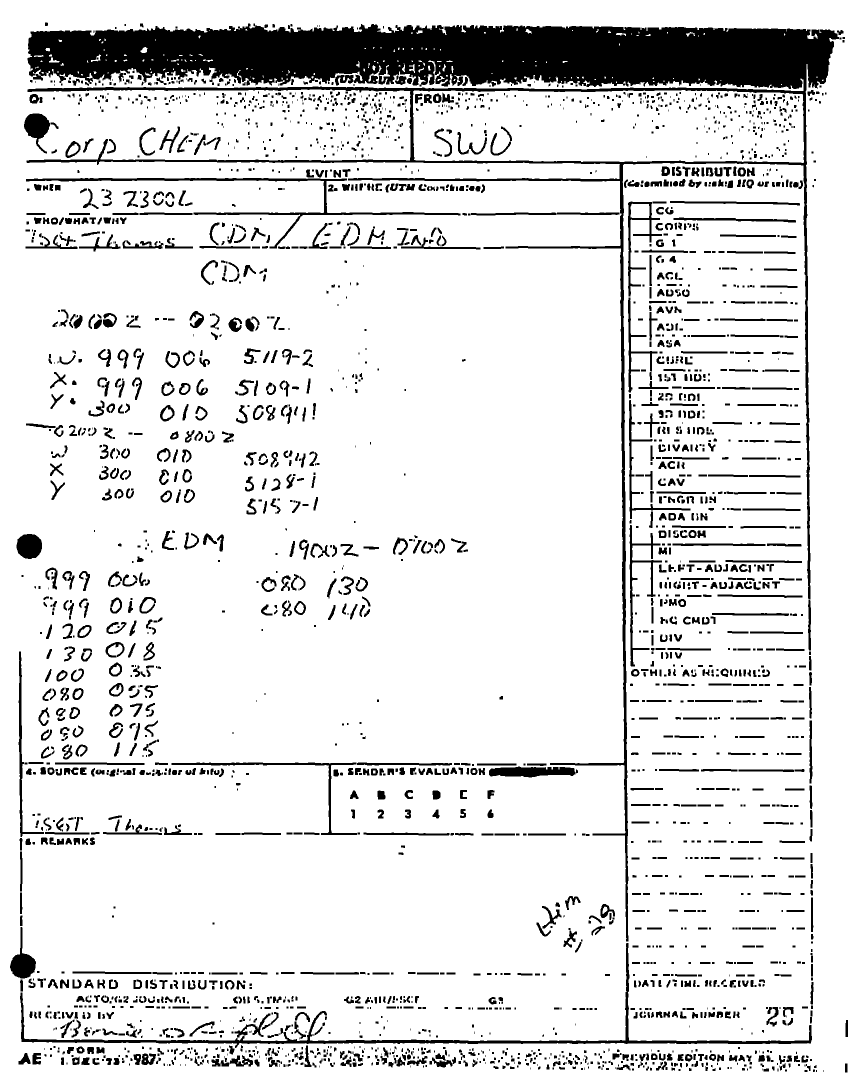 SPOT REPORT
TO: FROM:
Corp CHEM SWO
EVENT
1. WHEN 2. WHERE (UTM Coordinates)
23 2300L
3. WHO/WHAT/WHY
TSGT Thomas CDM/EDM INFO
CDM
2000Z -- 0200Z
W. 999 006 5119-2
X. 999 006 5109-1
Y. 300 010 508941
0200Z -- 0800Z
W 300 010 508942
X 300 010 5128-1
Y 300 010 5157-1
EDM 1900Z - 0700Z
999 006 080 130
999 010 080 140
120 015
130 018
100 035
080 055
080 075
080 095
080 115
4. SOURCE (original supplier of info)
TSGT Thomas
5. SENDER'S EVALUATION
A B C D E F
1 2 3 4 5 6
6. REMARKS
# 28
STANDARD DISTRIBUTION:
ACTO/G2 JOURNAL G2 AIR/ G3
RECEIVED BY
AE FORM 1 DEC 73 987
DISTRIBUTION
(determined by using HQ or units)
CG
CORPS
G 1
G 4
ACL
ADSO
AVN
ASA
CURL
1ST BDE
2D BDE
3D BDE
RES BDE
DIVARTY
ACR
CAV
ENGR BN
ADA BN
DISCOM
MI
LEFT-ADJACENT
RIGHT-ADJACENT
PMO
HQ CMDT
DIV
DIV
OTHER AS REQUIRED
DATE/TIME RECEIVED
JOURNAL NUMBER
PREVIOUS EDITION MAY BE USED